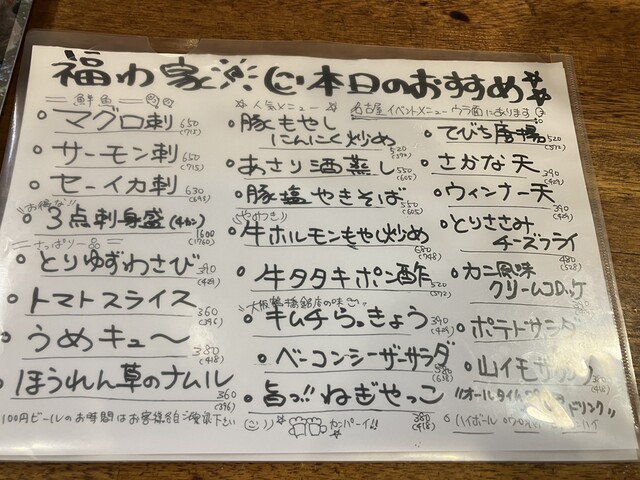 福わ家 本日のおすすめ
鮮魚
マグロ刺 650 (715)
サーモン刺 650 (715)
セーイカ刺 630 (693)
お得な!!
3点刺身盛(4カン) 1600 (1760)
さっぱり一品
とりゆずわさび 390 (429)
トマトスライス 360 (396)
うめキュ〜 380 (418)
ほうれん草のナムル 360 (396)
100円ビールのお時間はお客様自
下さい
人気メニュー
豚もやし
にんにく炒め 520 (572)
あさり酒蒸し 550 (605)
豚塩やきそば 550 (605)
やみつき
牛ホルモンもやし炒め 680 (748)
牛タタキポン酢 520 (572)
大阪鶴橋銘店の味
キムチらっきょう 390 (429)
ベーコンシーザーサラダ 580 (638)
旨っ!!ねぎやっこ 380 (418)
カンパーイ!!
名古屋イベントメニューウラ面にあります
てびち唐揚 520 (572)
さかな天 390 (429)
ウィンナー天 390 (429)
とりささみ
チーズフライ 480 (528)
カニ風味
クリームコロッケ
ポテトサラダ
山イモ
"オールタイム
ドリンク"
ハイボール